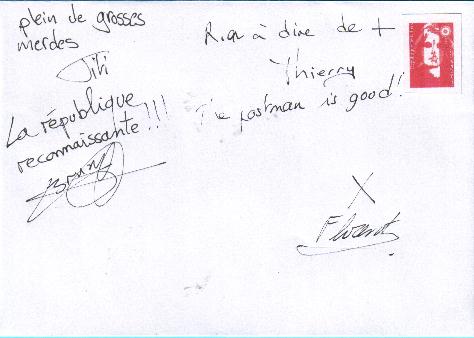 plein de grosses
merdes
Titi
La république
reconnaissante !!!
Bruno
Rien à dire de +
Thierry
The postman is good!
X